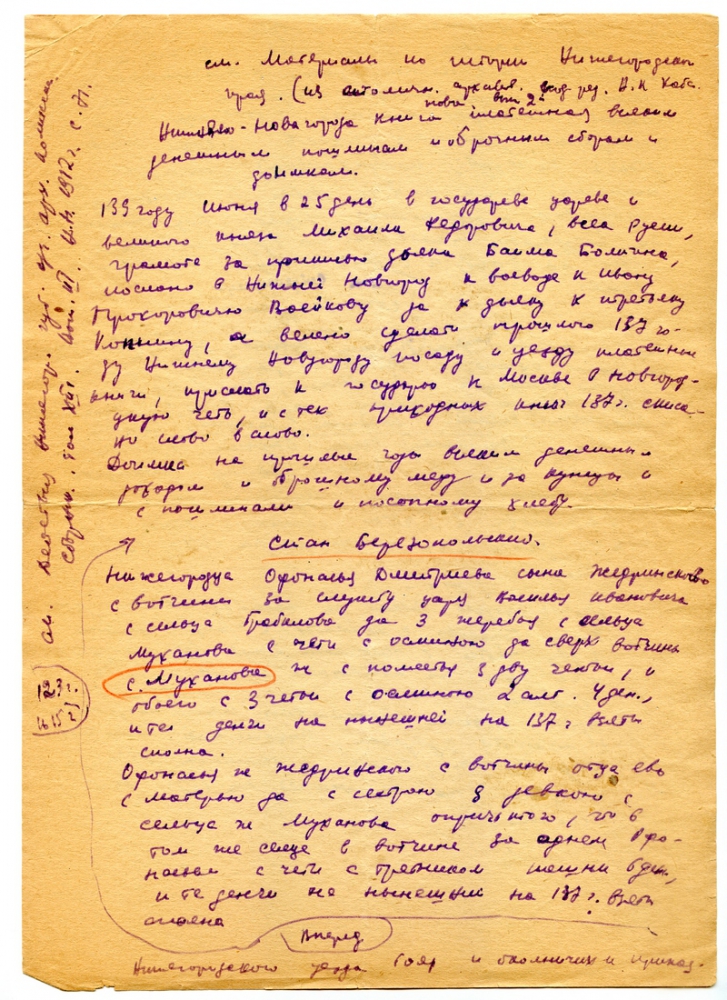 см. Материалы по истории Нижегородского
края. (из столичн. архивов. под ред. Н. И.
вып 2
Нижнего-Новагорода книга платежная всяким
денежным пошлинам и оброчным сборам и
доимкам.
139 году Июня в 25 день в государеве цареве и
великого князя Михаила Федоровича, всеа Русии,
грамоте за приписью дьяка Баима Болтина,
послано в Нижней Новгород к воеводе к Ивану
Прохоровичю Воейкову да к дьяку к Третьяку
Копнину, а велено сделати прошлого 137 го-
ду Нижнему Новугороду посаду и уезду платежные
книги, прислать к государю к Москве в Новгород-
цкую четь, и с тех приходных книг 137 г. списа-
но слово в слово.
Доимка на прошлые годы всяким денежным
доходом и оброшному меду и за куницы и
с пошлинами и посопному хлебу.
Стан Березопольский.
Нижегородца Офонасья Дмитриева сына Жедринсково
с вотчины за службу царя Василья Ивановича
с сельца Грабилова да 3 жеребья с сельца
Муханова с чети с осминою да сверх вотчины
с. Муханова ж с поместья з дву четьи, и
обоего с 3 четьи с осминою 2 алт. 4 ден.,
и те денги на нынешней на 137 г взяты
сполна.
Офонасья ж Жедринского с вотчины отца ево
с матерью да с сестрою з девкою с
сельца ж Муханова опричь того, что в
том же селце в вотчине за однем Офо-
насьем с чети с третником пошлин 6 ден,
и те денги на нынешний на 137 г. взяты
сполна
Вперед
Нижегородского уезда бояр и околничих и приказ-
см. Действия Нижегор. губ. уч. арх. комиссии
Сборник. том XIII. вып. III. Н.Н. 1912 г. с.
123 г.
(1615 г)